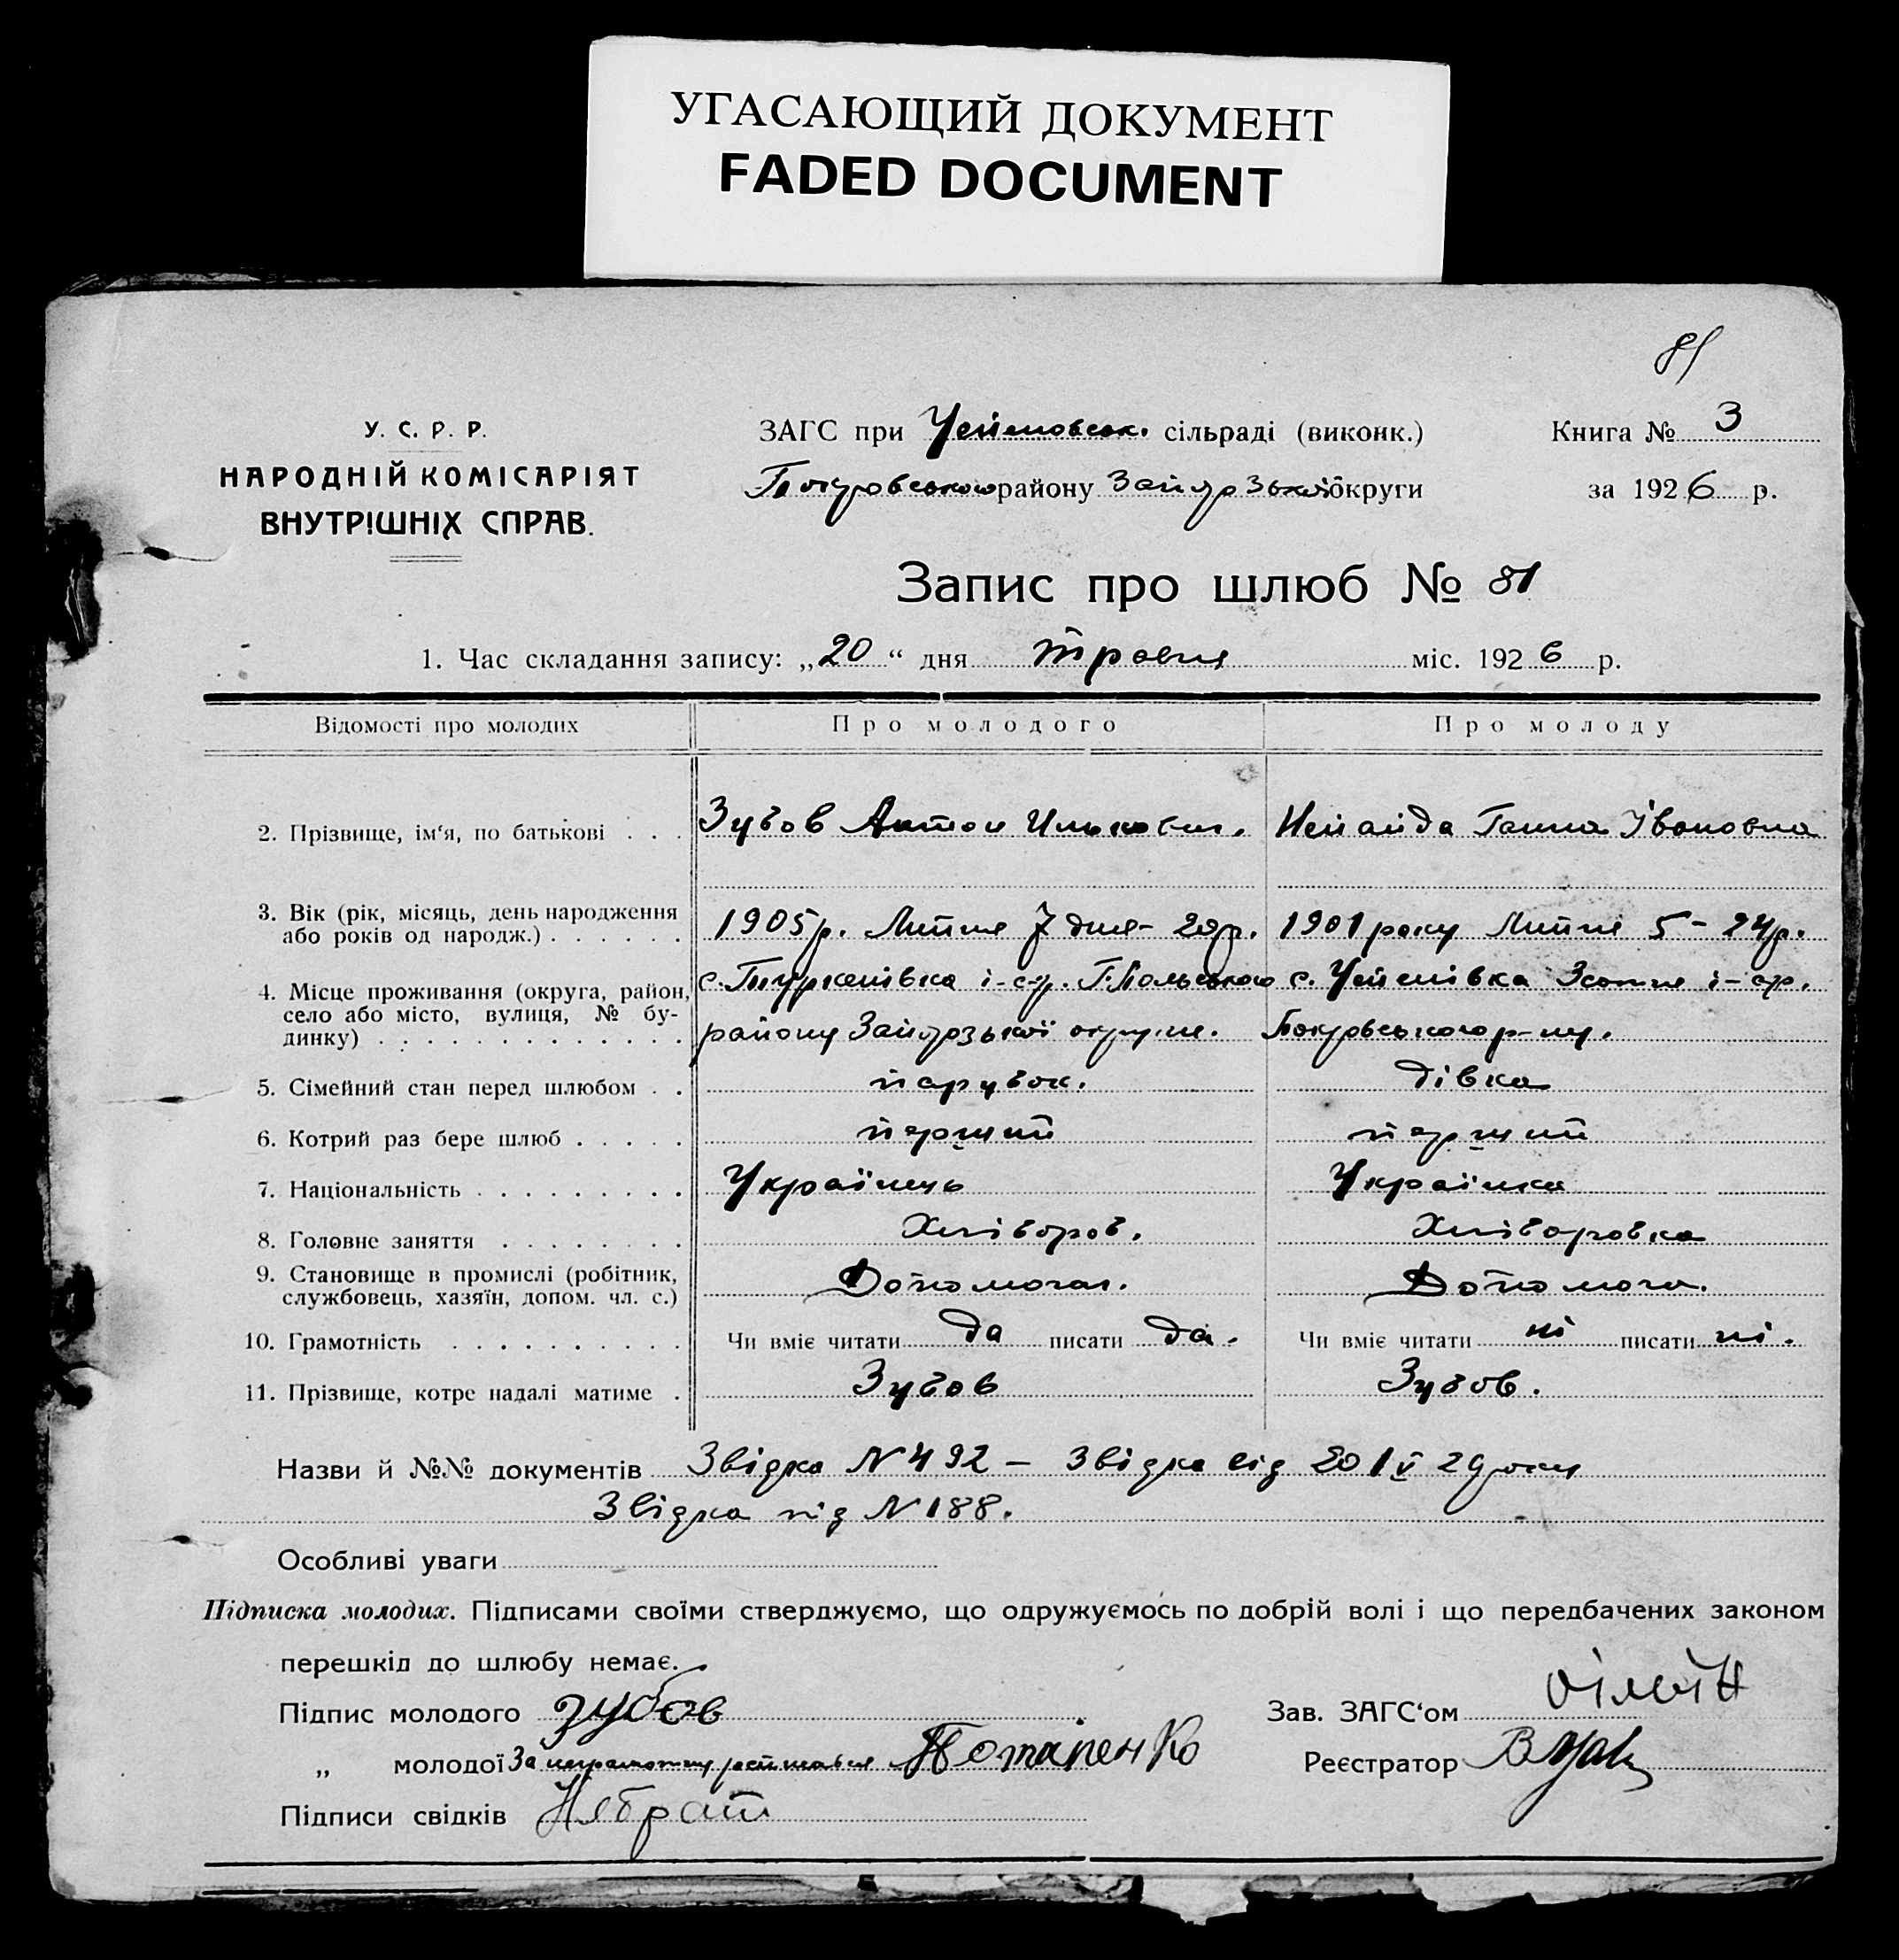 УГАСАЮЩИЙ ДОКУМЕНТ
FADED DOCUMENT
81
У. С. Р. Р.
НАРОДНІЙ КОМІСАРІЯТ
ВНУТРІШНІХ СПРАВ.
ЗАГС при Успеновськ. сільраді (виконк.)
Покровського району Запорзької округи
Книга № 3
за 1926 р.
Запис про шлюб № 81
1. Час складання запису: „20“ дня травня міс. 1926 р.
Відомості про молодих Про молодого Про молоду
2. Прізвище, ім‘я, по батькові . . . Зубов Антон Ількович. Ганна Івановна
3. Вік (рік, місяць, день народження
або років од народж.) . . . . . . 1905р. Липня 7 дня - 20р. 1901 року Липня 5 - 24р.
4. Місце проживання (округа, район,
село або місто, вулиця, № бу-
динку) . . . . . . . . . . . . .
с. Туркенівка і-ср. Г.Польського с. Успенівка і-ср.
району Запорзької округи. Покровського р-ну.
5. Сімейний стан перед шлюбом . . парубок. дівка
6. Котрий раз бере шлюб . . . . . перший перший
7. Національність . . . . . . . . . Українець Українка
8. Головне заняття . . . . . . . . Хлібороб. Хліборобка
9. Становище в промислі (робітник,
службовець, хазяїн, допом. чл. с.) Допомогає. Допомога.
10. Грамотність . . . . . . . . . . Чи вміє читати да писати да. Чи вміє читати ні писати ні.
11. Прізвище, котре надалі матиме . Зубов Зубов.
Назви й №№ документів Звідка N 492 - Звідка від 20 / V 26 року
Звідка під N 188.
Особливі уваги
Підписка молодих. Підписами своїми стверджуємо, що одружуємось по добрій волі і що передбачених законом
перешкід до шлюбу немає.
Підпис молодого Зубов
„ молодої За неграмотну росписався Потапенко
Підписи свідків
Зав. ЗАГС‘ом
Реєстратор